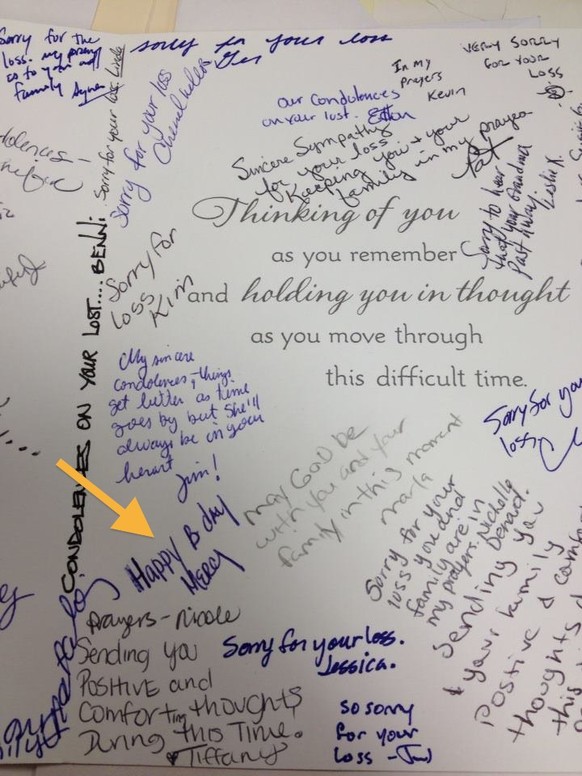 Sorry for the
loss. my prayers
go to you and
family
sorry for your loss
Sorry for your loss. Linda
Sorry for your loss
In my
Prayers
Kevin
VERY SORRY
FOR YOUR
LOSS
our Condolences
on your lost.
Sincere Sympathy
for your loss
Keeping you & your
family in my prayers
Pat
Sorry to hear
that your Grandma
Past Away
Leslie K.
Thinking of you
as you remember
and holding you in thought
as you move through
this difficult time.
CONDOLENCES ON YOUR LOST.... BENNI
Sorry for
loss
Kim
My sincere
condolences, things
get better as time
goes by but she'll
always be in your
heart
Jim!
Sorry for your
loss
May God be
with you and your
family in this moment
Marla
Happy B day
Mercy
Sorry for your
loss you and
family are in
my prayers. Nichelle
Denard.
Sending you
& your family
positive &
thoughts
this
Prayers - Nicole
Sending you
Positive and
Comforting thoughts
During this Time.
Tiffany
Sorry for your loss.
Jessica.
so sorry
for your
loss